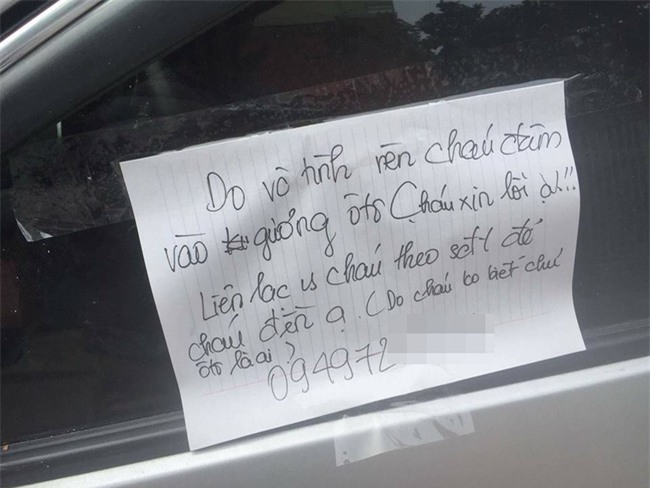 Do vô tình nên cháu đâm
vào gương ôtô Cháu xin lỗi ạ!!!
Liên lạc vs cháu theo sđt để
cháu đền ạ. (Do cháu ko biết chủ
ôtô là ai)
094972